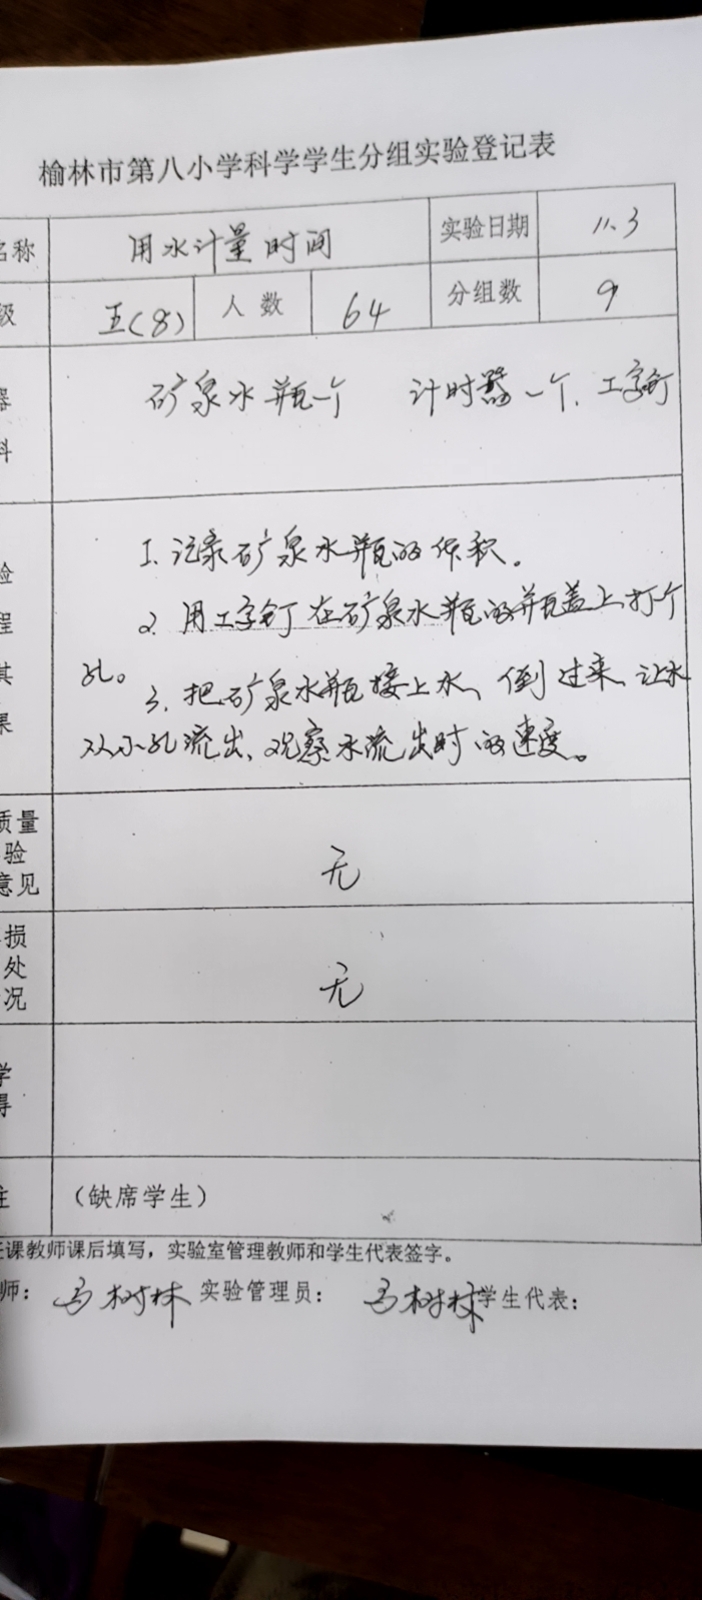 榆林市第八小学科学学生分组实验登记表
名称 用水计量时间 实验日期 11.3
级 五(8) 人数 64 分组数 9
器 矿泉水瓶一个 计时器一个、工字钉
料
1.记录矿泉水瓶的体积。
验 2.用工字钉在矿泉水瓶的瓶盖上打个
程 孔。
其 3.把矿泉水瓶接上水、倒过来、让水
果 从小孔流出、观察水流出时的速度。
质量
验 无
意见
损
处 无
况
学
得
注 (缺席学生)
任课教师课后填写，实验室管理教师和学生代表签字。
师： 马树林 实验管理员： 马树林 学生代表：